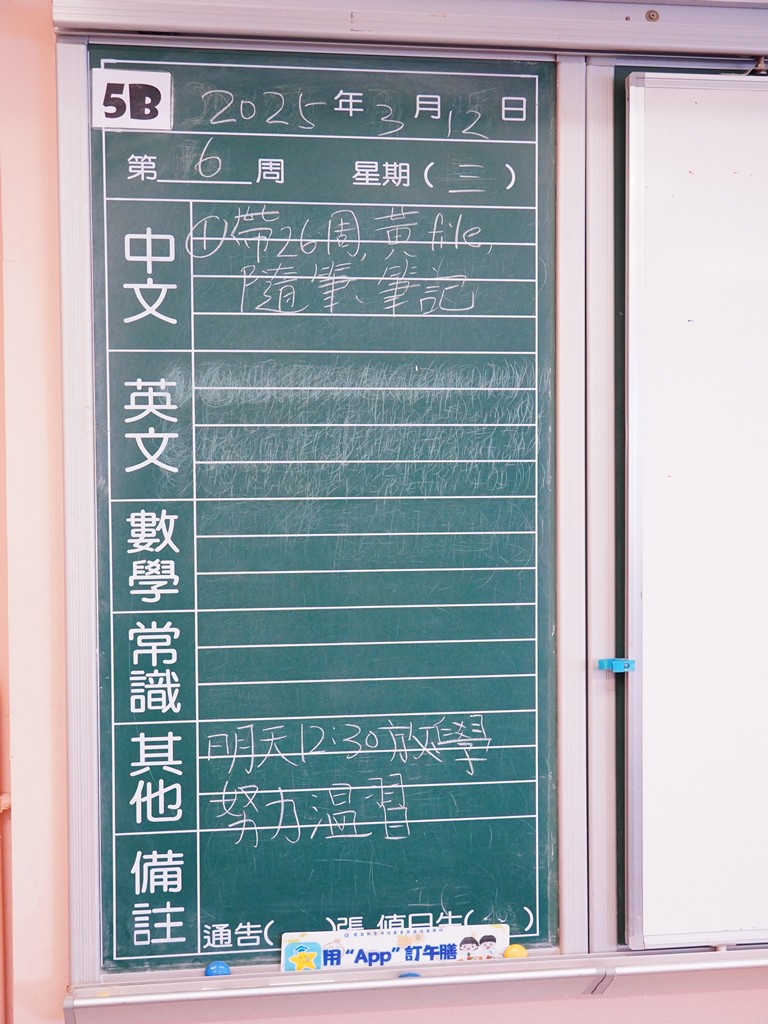 5B 2025年3月12日
第6周 星期(三)
中文
①帶26周,黃file,
隨筆、筆記
英文
數學
常識
其他
明天12:30放學
努力溫習
備註
通告( )張 值日生( )
用“App”訂午膳